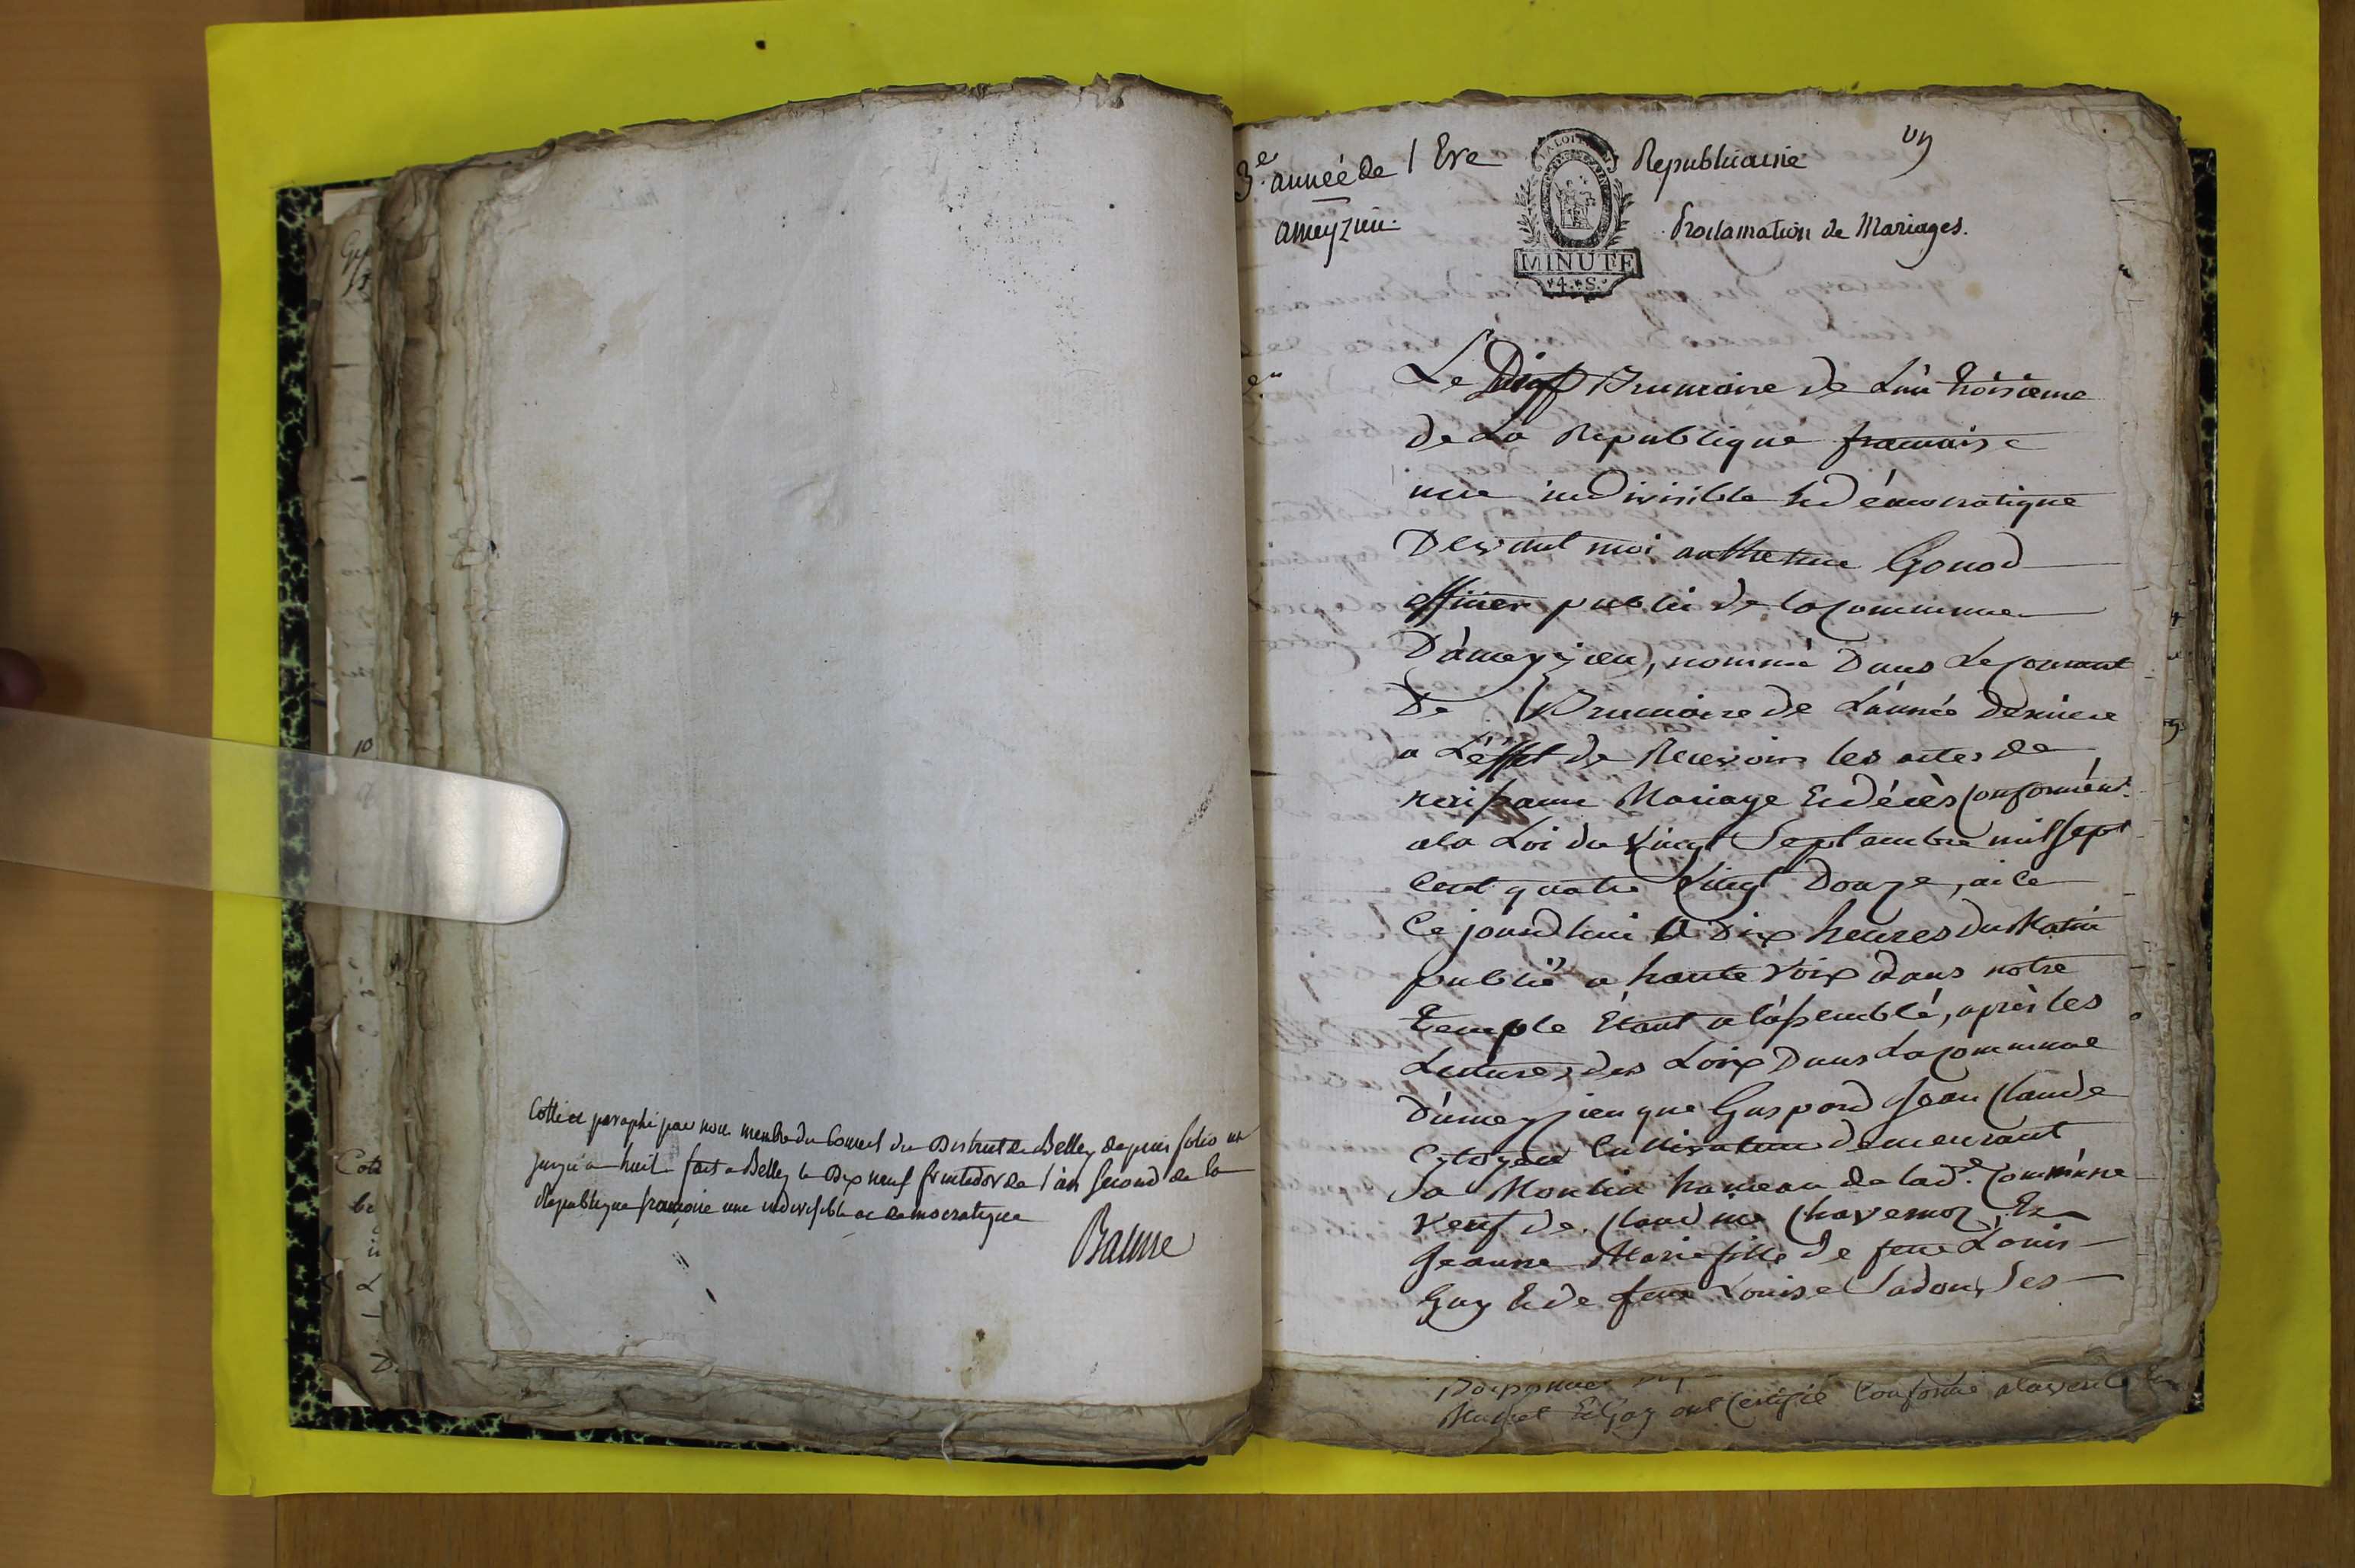 Cotté et paraphé par nous membre du Conseil du District de Belley depuis folio un
jusqu'a huit fait a Belley le Dix neuf fructidor de l'an second de la
Republique francoise une indivisible et democratique
Balme
3e année de l Ere Republicaine
un
ameyzieu
Proclamation de Mariages.
LA LOI
MINUTE
4. S.
Le Brumaire de L'an troisieme
de La Republique francaise
une indivisible Et démocratique
Devant moi anthelme Gonod
officier public de la Commune
D'ameyzieu, nommé Dans Le courant
De Brumaire de L'année Derniere
a L'éffet de Recevoir les actes de
Naissance Mariage Et décès conformémt
a la Loi du Vingt Septembre mil sept
Cent quatre Vingt Douze, ai ce
Ce jourd'hui a Dix heures du Matin
publié a haute Voix dans notre
temple Etant a l'assemblé, après les
Lectures des Loix Dans La commune
D'ameyzieu que Gaspard Jean Claude
Citoyen Cultivateur demeurant
Moulin hameau de lade. Commune
Veuf de Claudine Et
Jeanne Marie fille de feu Louis
Guy Et de feue Louise Ses
Et Guy ont certifié Conforme a la verité
Cott
10